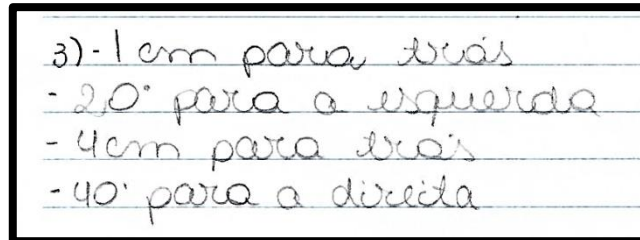 3)-1cm para trás
-20° para a esquerda
-4cm para trás
-40° para a direita